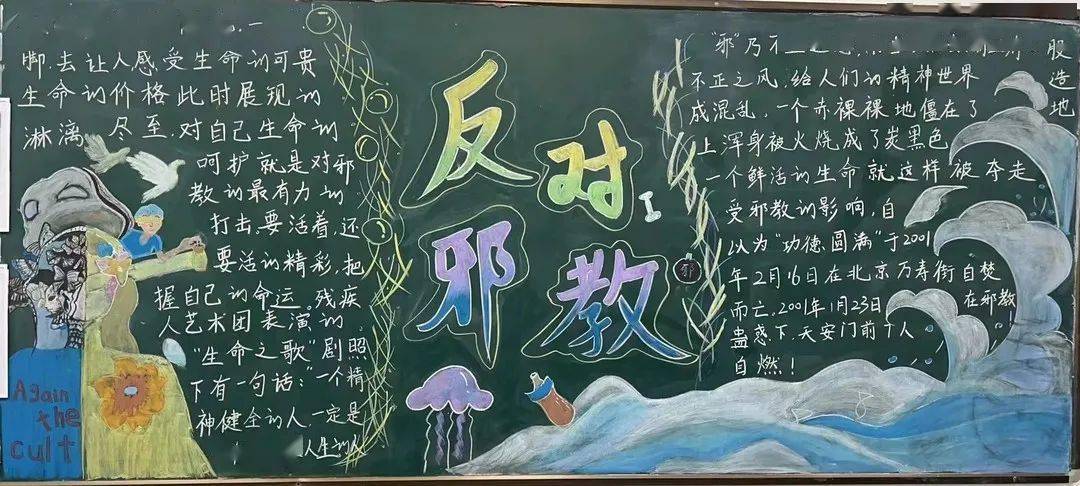 脚,去让人感受生命的可贵
生命的价格此时展现的
淋漓尽至,对自己生命的
呵护就是对邪
教的最有力的
打击,要活着,还
要活的精彩,把
握自己的命运。残疾
人艺术团表演的,
"生命之歌"剧照
下有一句话:"一个精
神健全的人,一定是
人生的
Again
the
cult
反对
邪教
邪
"邪"乃不
股
不正之风,给人们的精神世界造
成混乱,一个赤裸裸地僵在了地
上浑身被火烧成了炭黑色
一个鲜活的生命就这样被夺走
受邪教的影响,自
以为"功德圆满"于2001
年2月16日在北京万寿街自焚
而亡,2001年1月23日在邪教
蛊惑下天安门前十人
自燃!